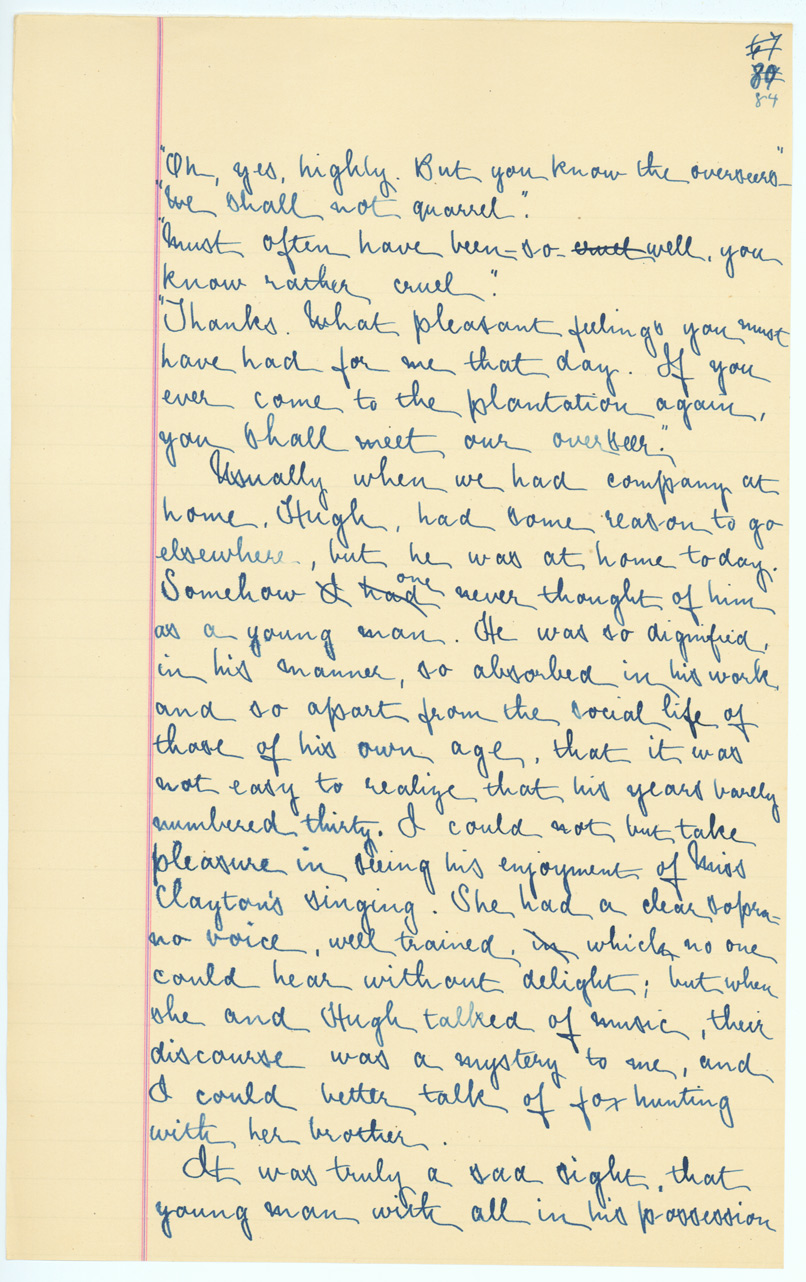 67
80
84
"Oh, yes, highly. But you know the overseers"—
"We shall not quarrel".
"Must often have been – so – cruel well, you
know rather cruel".
"Thanks. What pleasant feelings you must
have had for me that day. If you
ever come to the plantation again,
you shall meet our overseer".
Usually when we had company at
home, Hugh, had some reason to go
elsewhere, but he was at home today.
Somehow I had one never thought of him
as a young man. He was so dignified,
in his manner, so absorbed in his work
and so apart from the social life of
those of his own age, that it was
not easy to realize that his years barely
numbered thirty. I could not but take
pleasure in seeing his enjoyment of Miss
Clayton's singing. She had a clear sopra=
no voice, well trained, in which no one
could hear without delight; but when
she and Hugh talked of music, their
discourse was a mystery to me, and
I could better talk of fox hunting
with her brother.
It was truly a sad sight, that
young man with all in his possession